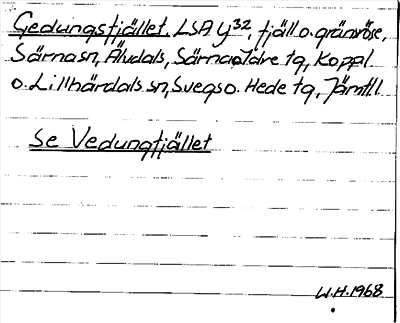 Gedungsfjället, LSA y³², fjäll o. gränsröse,
Särna sn, Älvdals, Särna o. Idre tg, Koppl.
o. Lillhärdals sn, Svegs o. Hede tg, Jämtl.l.
Se Vedungfjället
W.H. 1968